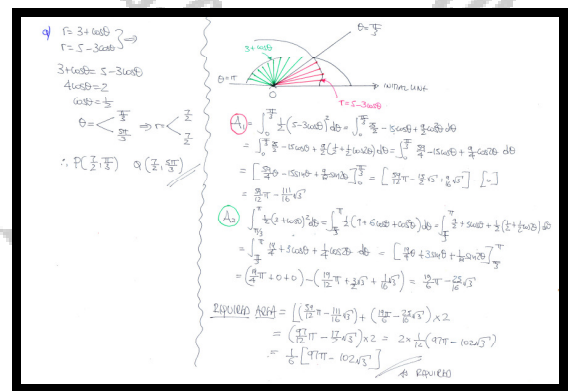 a) r = 3 + cosθ
r = 5 - 3cosθ } ⇒
3 + cosθ = 5 - 3cosθ
4cosθ = 2
cosθ = 1/2
θ = < π/3 5π/3 ⇒ r = < 7/2 7/2
∴ P(7/2, π/3) Q(7/2, 5π/3)
θ = π/3
3 + cosθ
θ = π
O
INITIAL LINE
r = 5 - 3cosθ
A₁ = ∫₀^{π/3} 1/2 (5 - 3cosθ)² dθ = ∫₀^{π/3} 25/2 - 15cosθ + 9/2 cos²θ dθ
= ∫₀^{π/3} 25/2 - 15cosθ + 9/2 (1/2 + 1/2 cos2θ) dθ = ∫₀^{π/3} 59/4 - 15cosθ + 9/4 cos2θ dθ
= [59/4 θ - 15sinθ + 9/8 sin2θ]₀^{π/3} = [59/12 π - 15/2 √3 + 9/16 √3] - [0]
= 59/12 π - 111/16 √3
A₂ = ∫_{π/3}^{π} 1/2 (3 + cosθ)² dθ = ∫_{π/3}^{π} 1/2 (9 + 6cosθ + cos²θ) dθ = ∫_{π/3}^{π} 9/2 + 3cosθ + 1/2 (1/2 + 1/2 cos2θ) dθ
= ∫_{π/3}^{π} 19/4 + 3cosθ + 1/4 cos2θ dθ = [19/4 θ + 3sinθ + 1/8 sin2θ]_{π/3}^{π}
= (19/4 π + 0 + 0) - (19/12 π + 3/2 √3 + 1/16 √3) = 19/6 π - 25/16 √3
REQUIRED AREA = [(59/12 π - 111/16 √3) + (19/6 π - 25/16 √3)] × 2
= (97/12 π - 17/2 √3) × 2 = 2 × 1/12 (97π - 102√3)
= 1/6 [97π - 102√3]
As REQUIRED